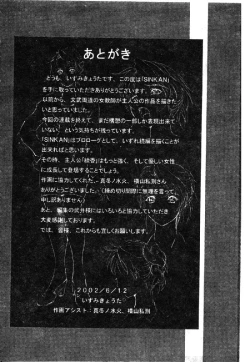 あとがき
どうも、いずみきょうたです。この度は「SINKAN」
を手に取っていただきありがとうございます。
以前から、文武両道の女教師が主人公の作品を描きた
いと思っていました。
今回の連載を終えて、まだ構想の一部しか表現出来て
いない、という気持ちが残っています。
「SINKAN」はプロローグとして、いずれ続編を描くことが
出来ればと思います。
その時、主人公「綾香」はもっと強く、そして優しい女性
に成長して登場することでしょう。
作画に協力してくれた、真冬ノ氷火、横山私別さん
ありがとうございました。(締め切り間際に無理を言って
申し訳ありません)
あと、編集の筑井様にはいろいろと協力していただき
大変感謝しております。
では、皆様、これからも宜しくお願いします。
2002/6/12
いずみきょうた
作画アシスト:真冬ノ氷火、横山私別